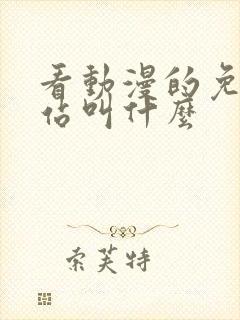 看動漫的免
估叫什麼
索芙特